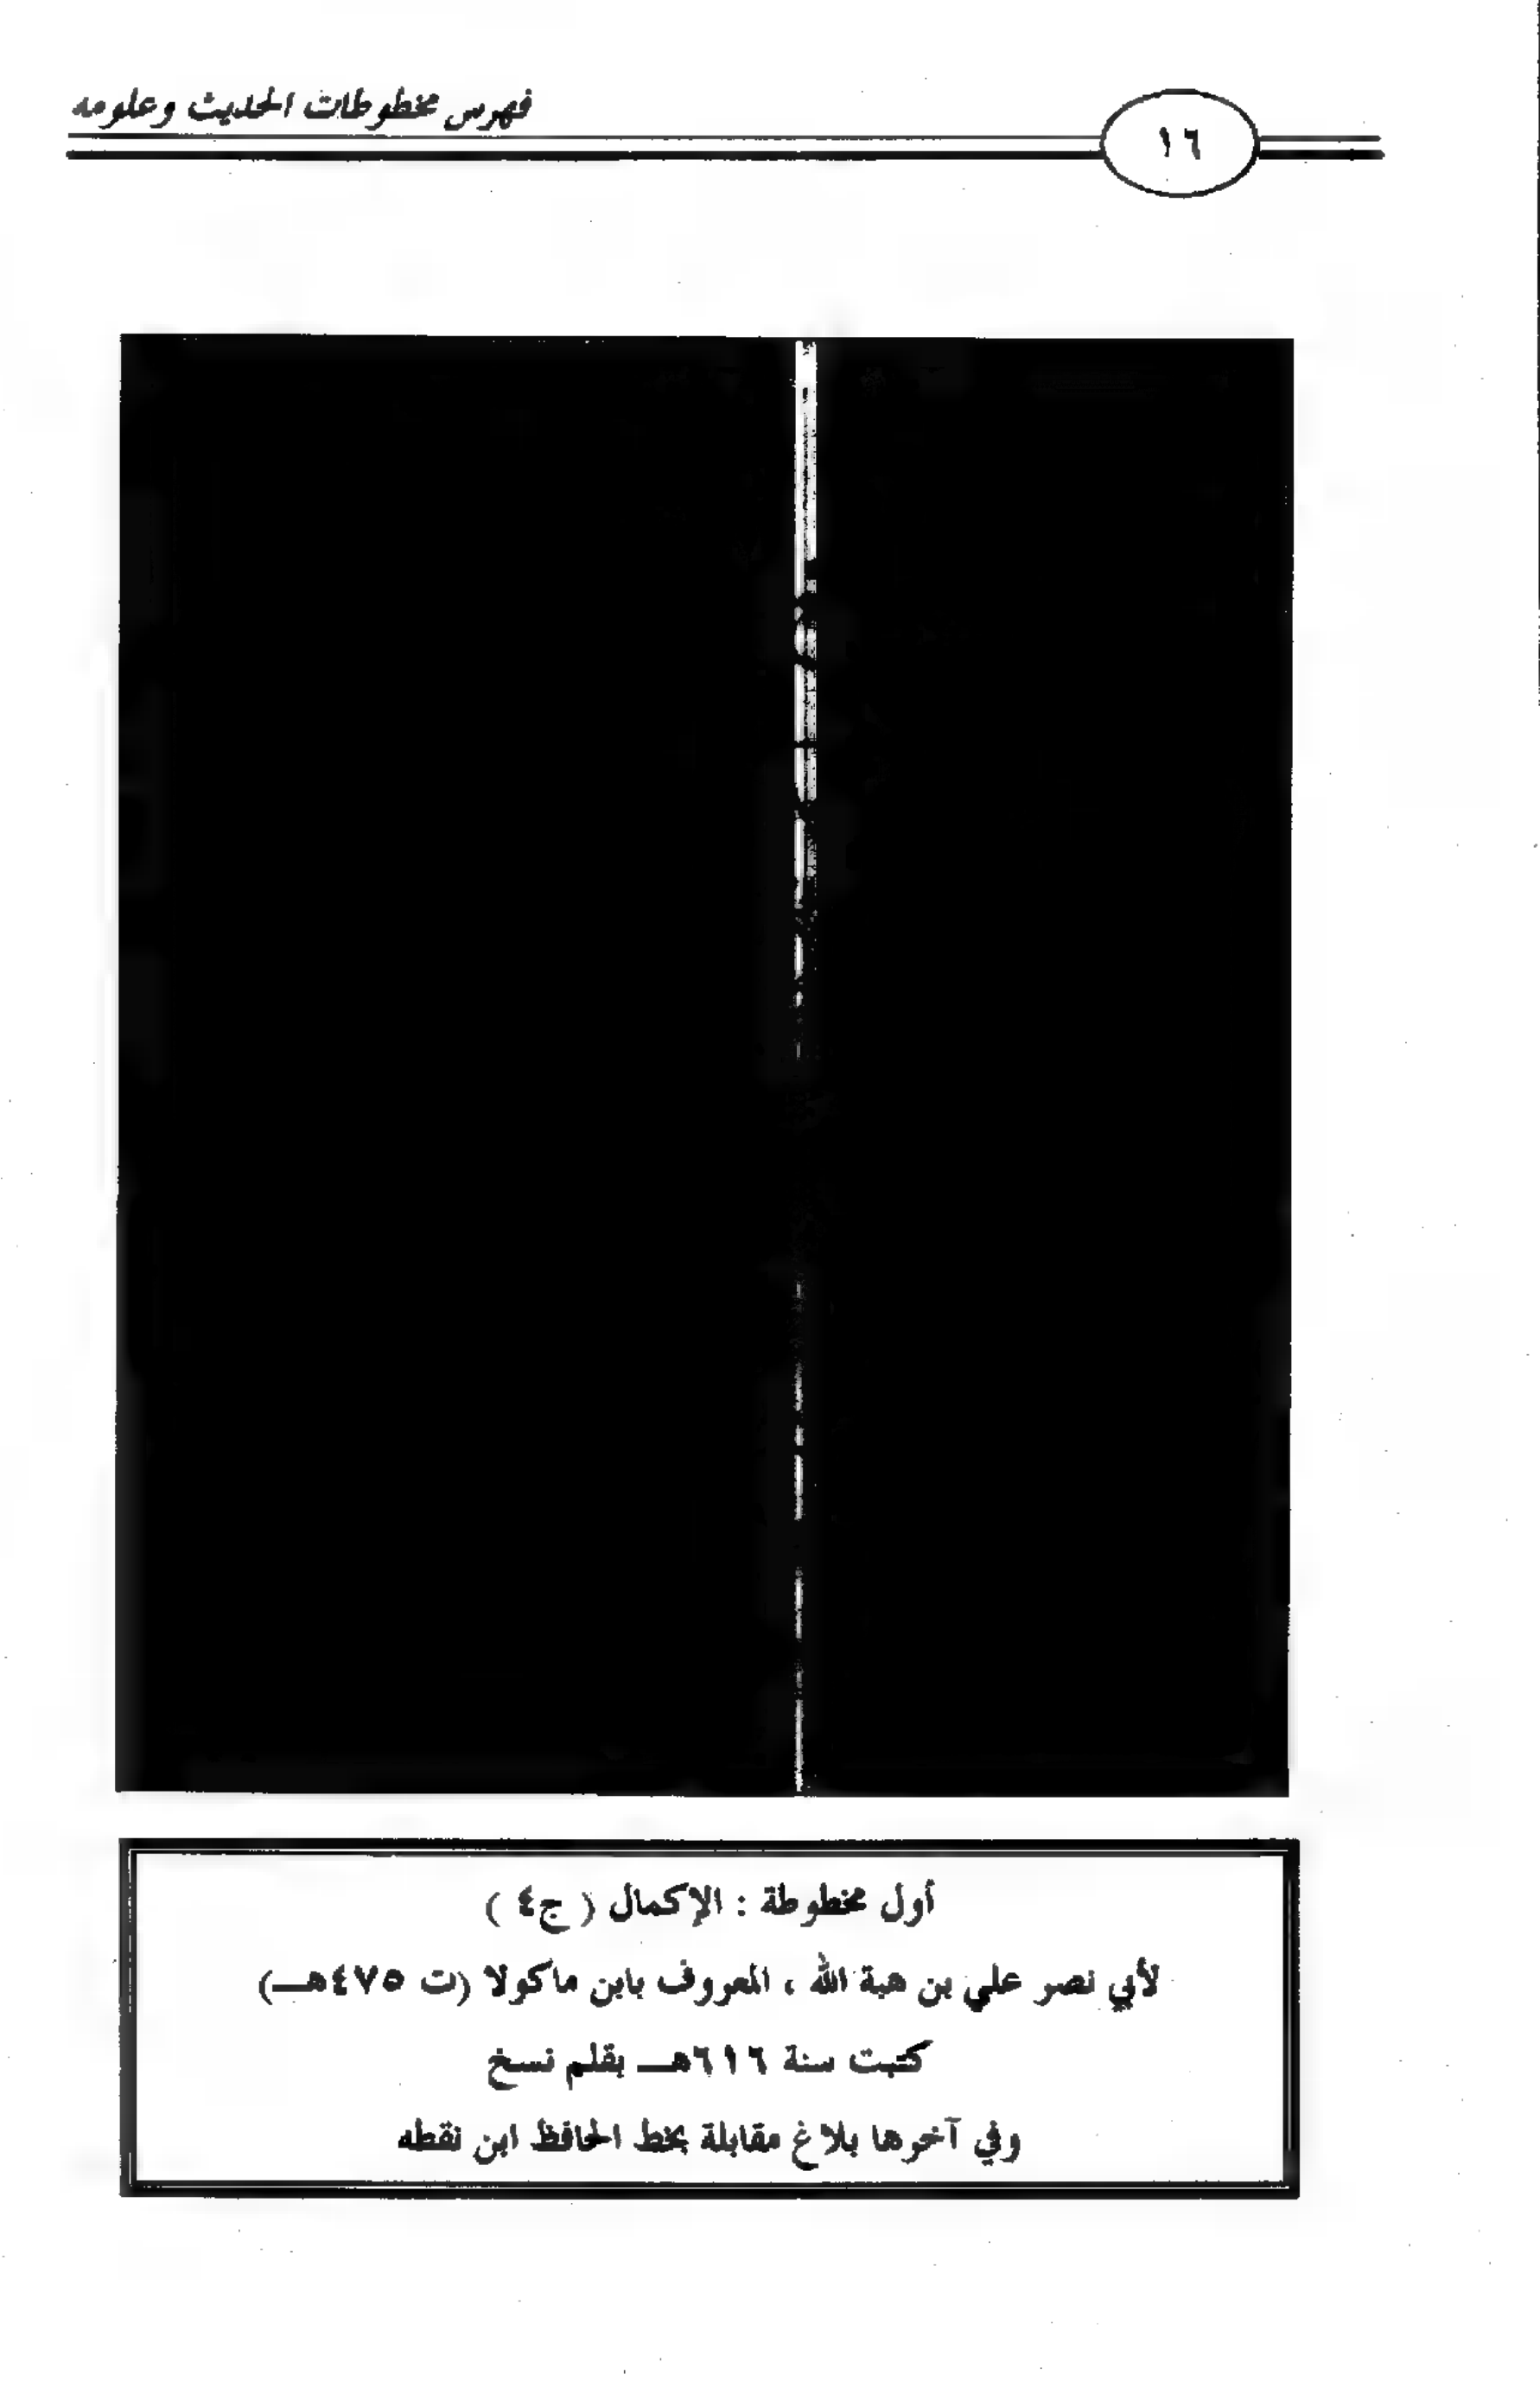 فهرس مخطوطات الحديث وعلومه
١٦
أول مخطوطة : الإكمال ( ج٤ )
لأبي نصر علي بن هبة الله ، المعروف بابن ماكولا (ت ٤٧٥هـ)
كتبت سنة ٦١٦هـ بقلم نسخ
وفي آخرها بلاغ مقابلة بخط الحافظ ابن نقطه